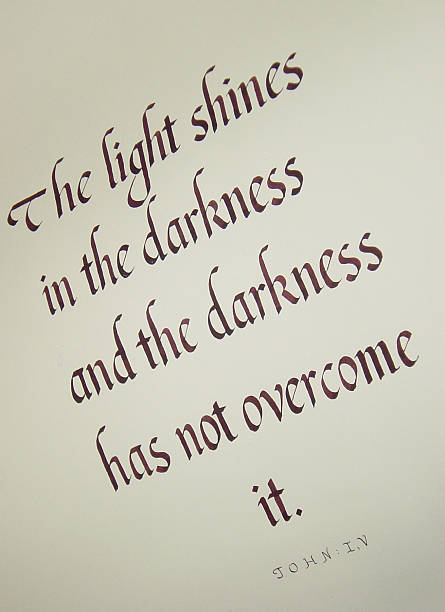 The light shines
in the darkness
and the darkness
has not overcome
it.
JOHN: I,V